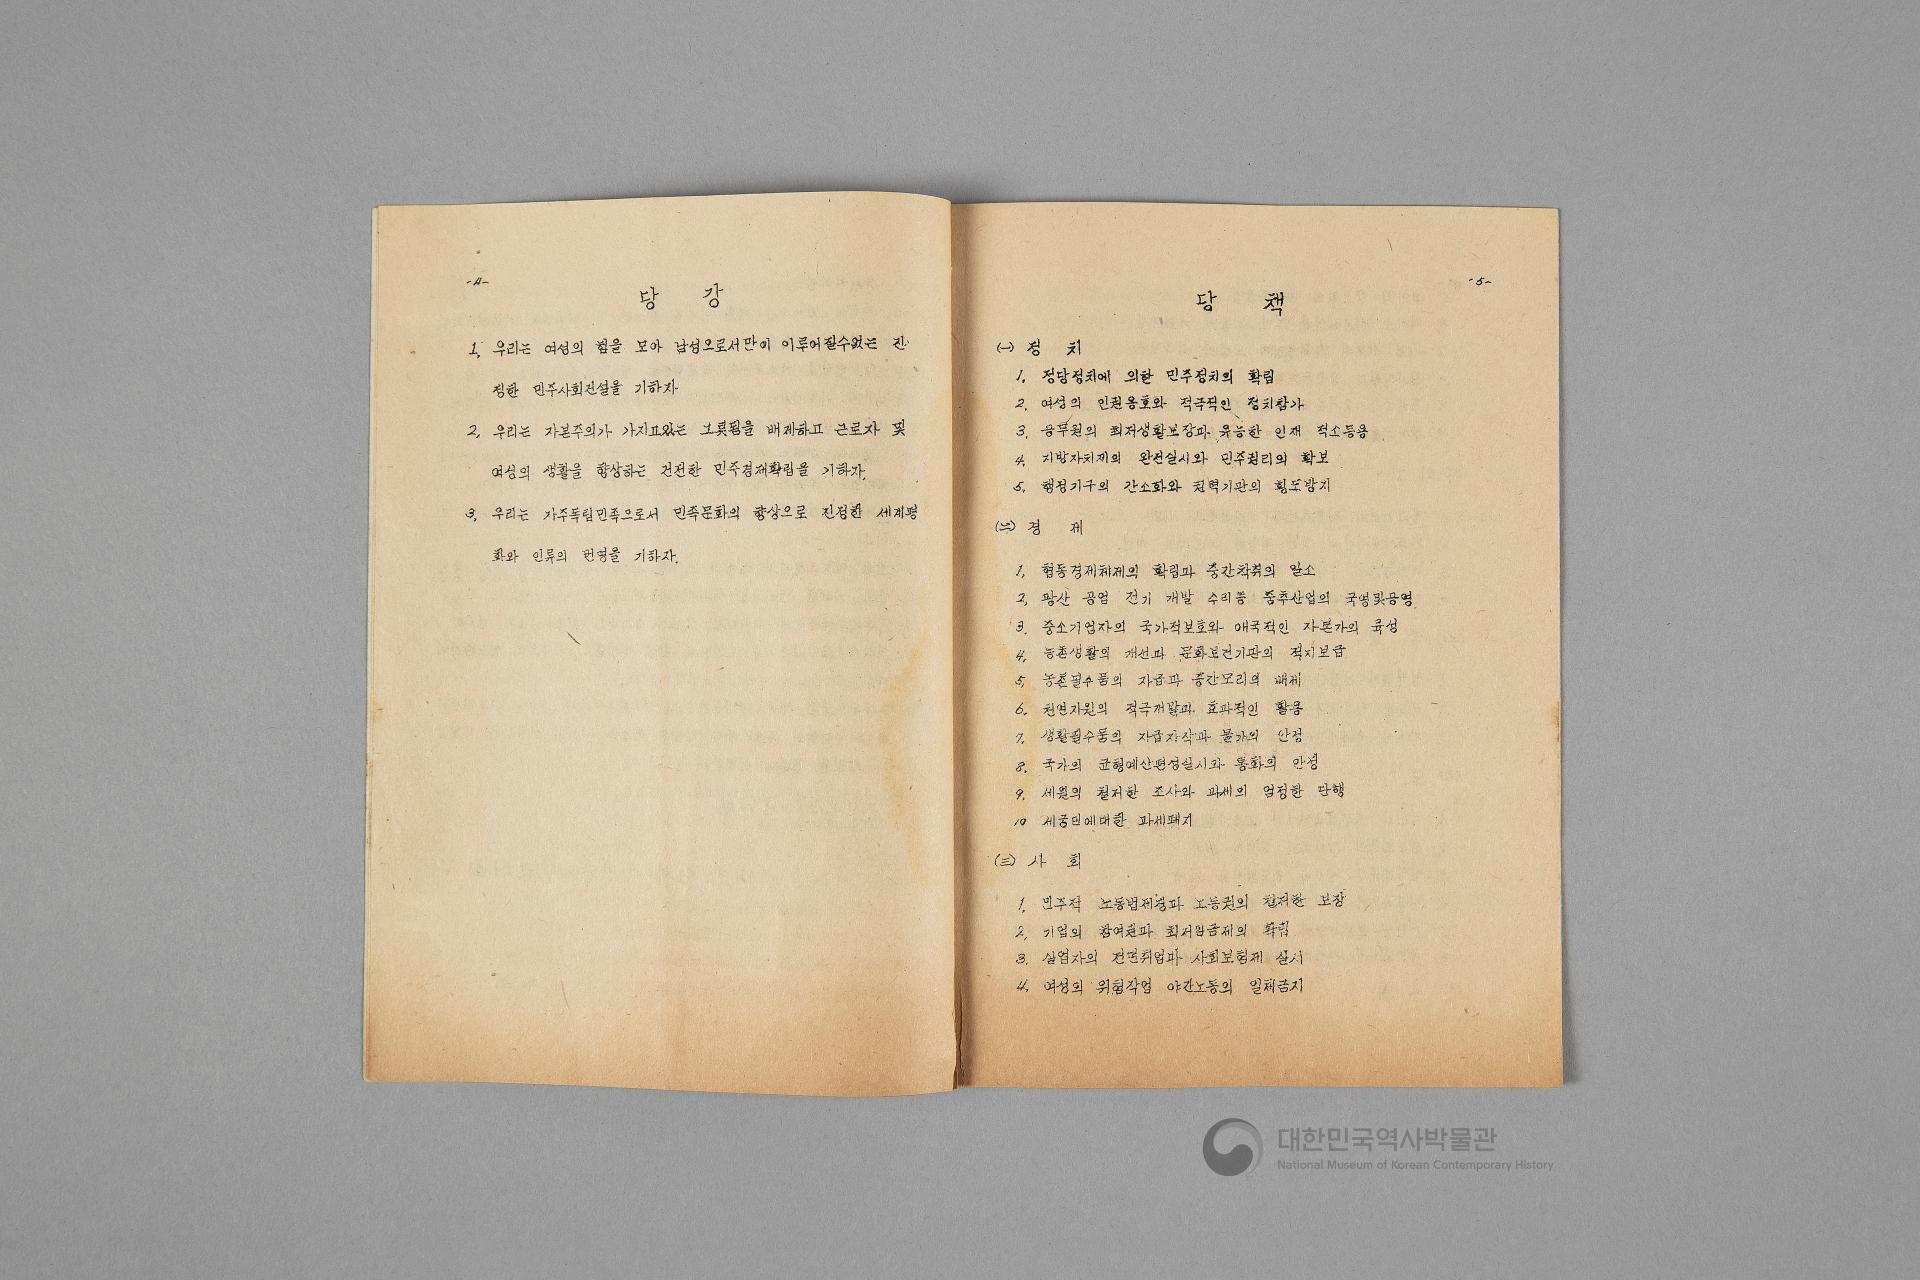 -4-
당 강
1. 우리는 여성의 힘을 모아 남성으로서만이 이루어질수없는 진
정한 민주사회건설을 기하자
2. 우리는 자본주의가 가지고있는 그릇됨을 배제하고 근로자 및
여성의 생활을 향상하는 건전한 민주경제확립을 기하자.
3. 우리는 자주독립민족으로서 민족문화의 향상으로 진정한 세계평
화와 인류의 번영을 기하자.
-5-
당 책
(一) 정 치
1. 정당정치에 의한 민주정치의 확립
2. 여성의 인권옹호와 적극적인 정치참가
3. 공무원의 최저생활보장과 유능한 인재 적소등용
4. 지방자치제의 완전실시와 민주권리의 확보
5. 행정기구의 간소화와 권력기관의 횡포방지
(二) 경 제
1. 협동경제체제의 확립과 중간착취의 일소
2. 광산 공업 전기 개발 수리등 중추산업의 국영및공영
3. 중소기업자의 국가적보호와 애국적인 자본가의 육성
4. 농촌생활의 개선과 문화보건기관의 적지보급
5. 농촌필수품의 자급과 중간모리의 배제
6. 천연자원의 적극개발과 효과적인 활용
7. 생활필수품의 자급자작과 물가의 안정
8. 국가의 균형예산편성실시와 통화의 안정
9. 세원의 철저한 조사와 과세의 엄정한 단행
10 세궁민에대한 과세폐지
(三) 사 회
1. 민주적 노동법제정과 노동권의 철저한 보장
2. 기업의 참여권과 최저임금제의 확립
3. 실업자의 전면취업과 사회보험제 실시
4. 여성의 위험작업 야간노동의 일체금지
대한민국역사박물관
National Museum of Korean Contemporary History